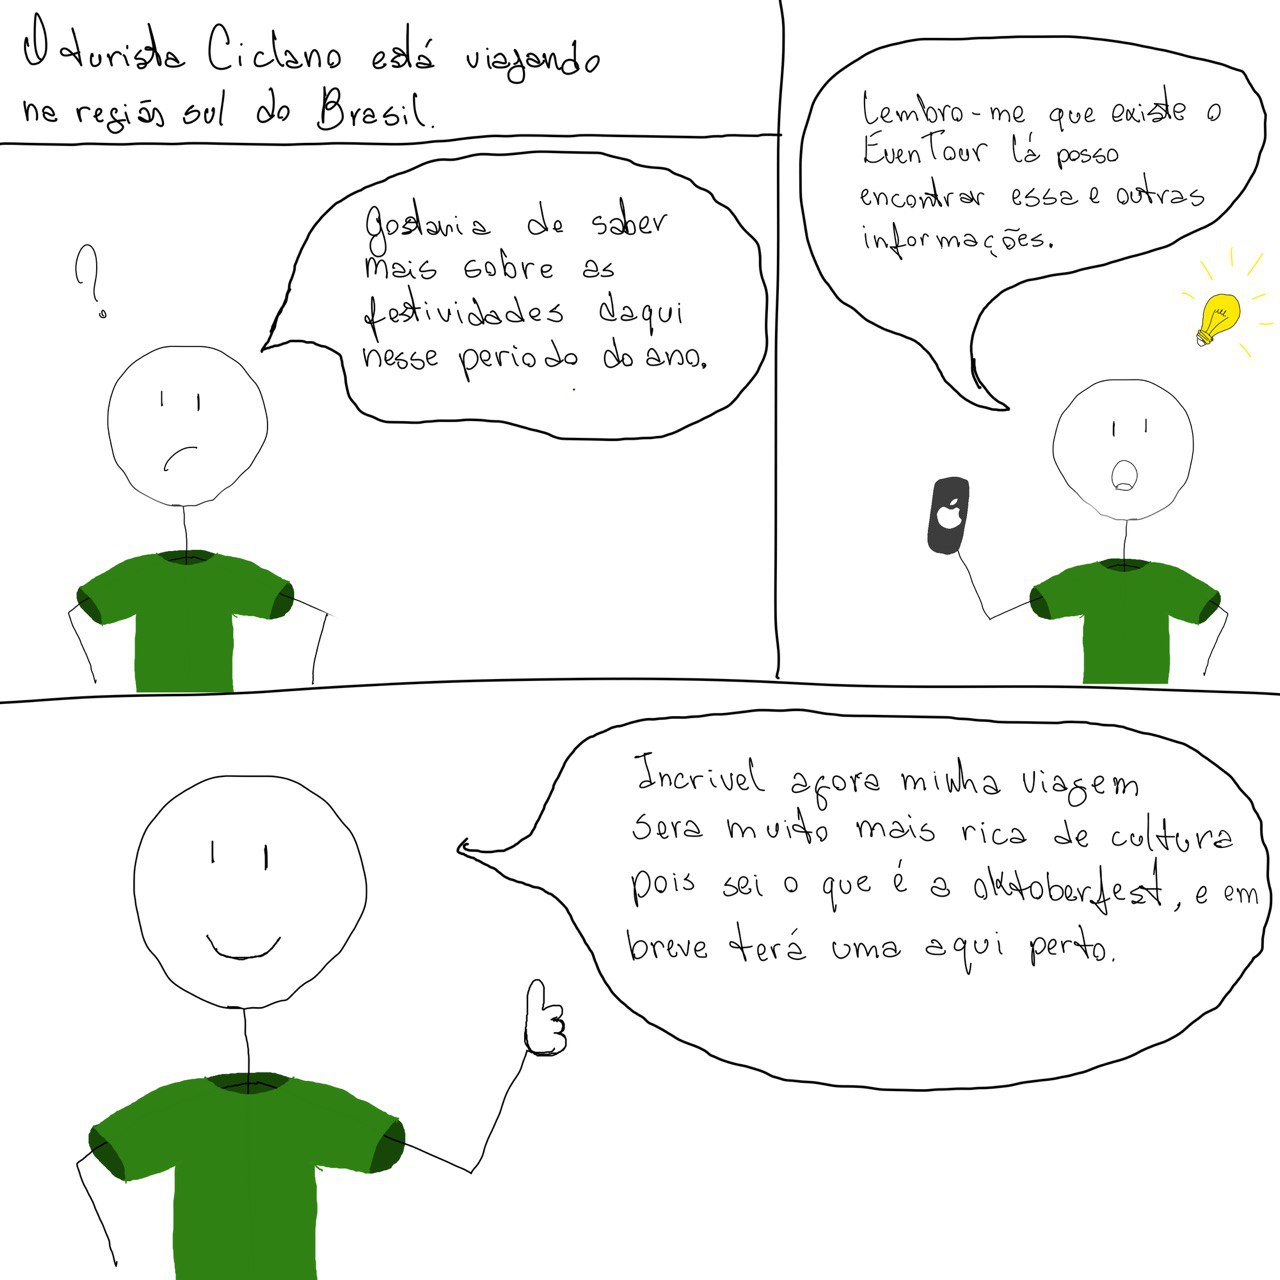 O turista Ciclano está viajando
na região sul do Brasil.
?
Gostaria de saber
mais sobre as
festividades daqui
nesse periodo do ano.
Lembro-me que existe o
EvenTour lá posso
encontrar essa e outras
informações.
Incrivel agora minha viagem
sera muito mais rica de cultura
pois sei o que é a oktoberfest, e em
breve terá uma aqui perto.